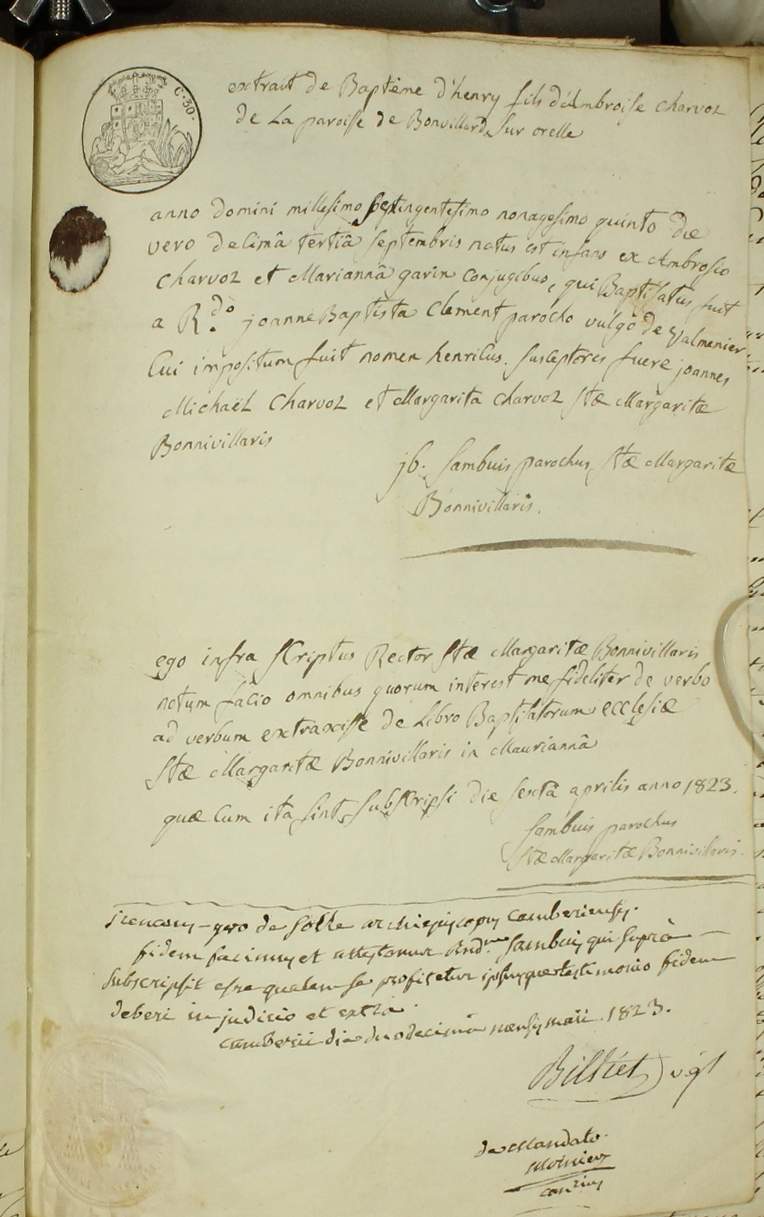 C. 30.
extrait de Baptême d'henry fils d'Ambroise Charvoz
de La paroisse de Bonvillard sur orelle
anno domini millesimo septingentesimo nonagesimo quinto die
vero decimâ tertiâ septembris natus est infans ex Ambrosio
Charvoz et Mariannâ garin conjugibus, qui Baptisatus fuit
a R.do joanne Baptista Clement parocho vulgo de valmenier.
Cui impositum fuit nomen henricus. susceptores fuere joannes
Michaël Charvoz et Margarita Charvoz stæ Margaritæ
Bonnivillaris
jb. Sambuis parochus stæ Margaritæ
Bonnivillaris.
ego infra scriptus Rector stæ Margaritæ Bonnivillaris
notum facio omnibus quorum interest me fideliter de verbo
ad verbum extraxisse de Libro Baptisatorum ecclesiæ
stæ Margaritæ Bonnivillaris in Mauriannâ
quæ Cum ita sint subscripsi die sextâ aprilis anno 1823.
Sambuis parochus
stæ Margaritæ Bonnivillaris.
de Solle archiepiscopus Camberiensis.
fidem facimus et attestamur Rndum Sambuis qui suprà
subscripsit esse qualem se profitetur ipsiusque testimonio fidem
deberi in judicio et extrà.
Camberii die duodecimâ mensis maii 1823.
Billiet vgl
de Mandato